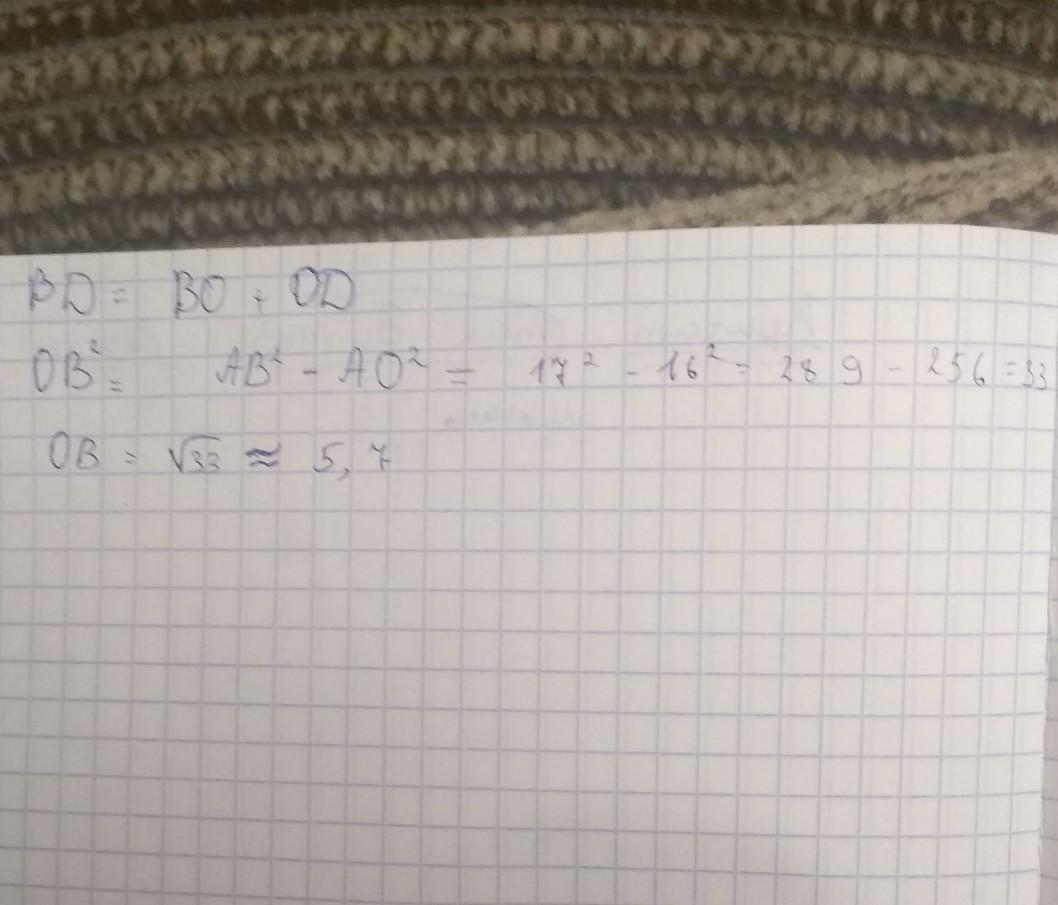 BD = BO + OD
OB² = AB² - AO² = 17² - 16² = 289 - 256 = 33
OB = √33 ≈ 5,7